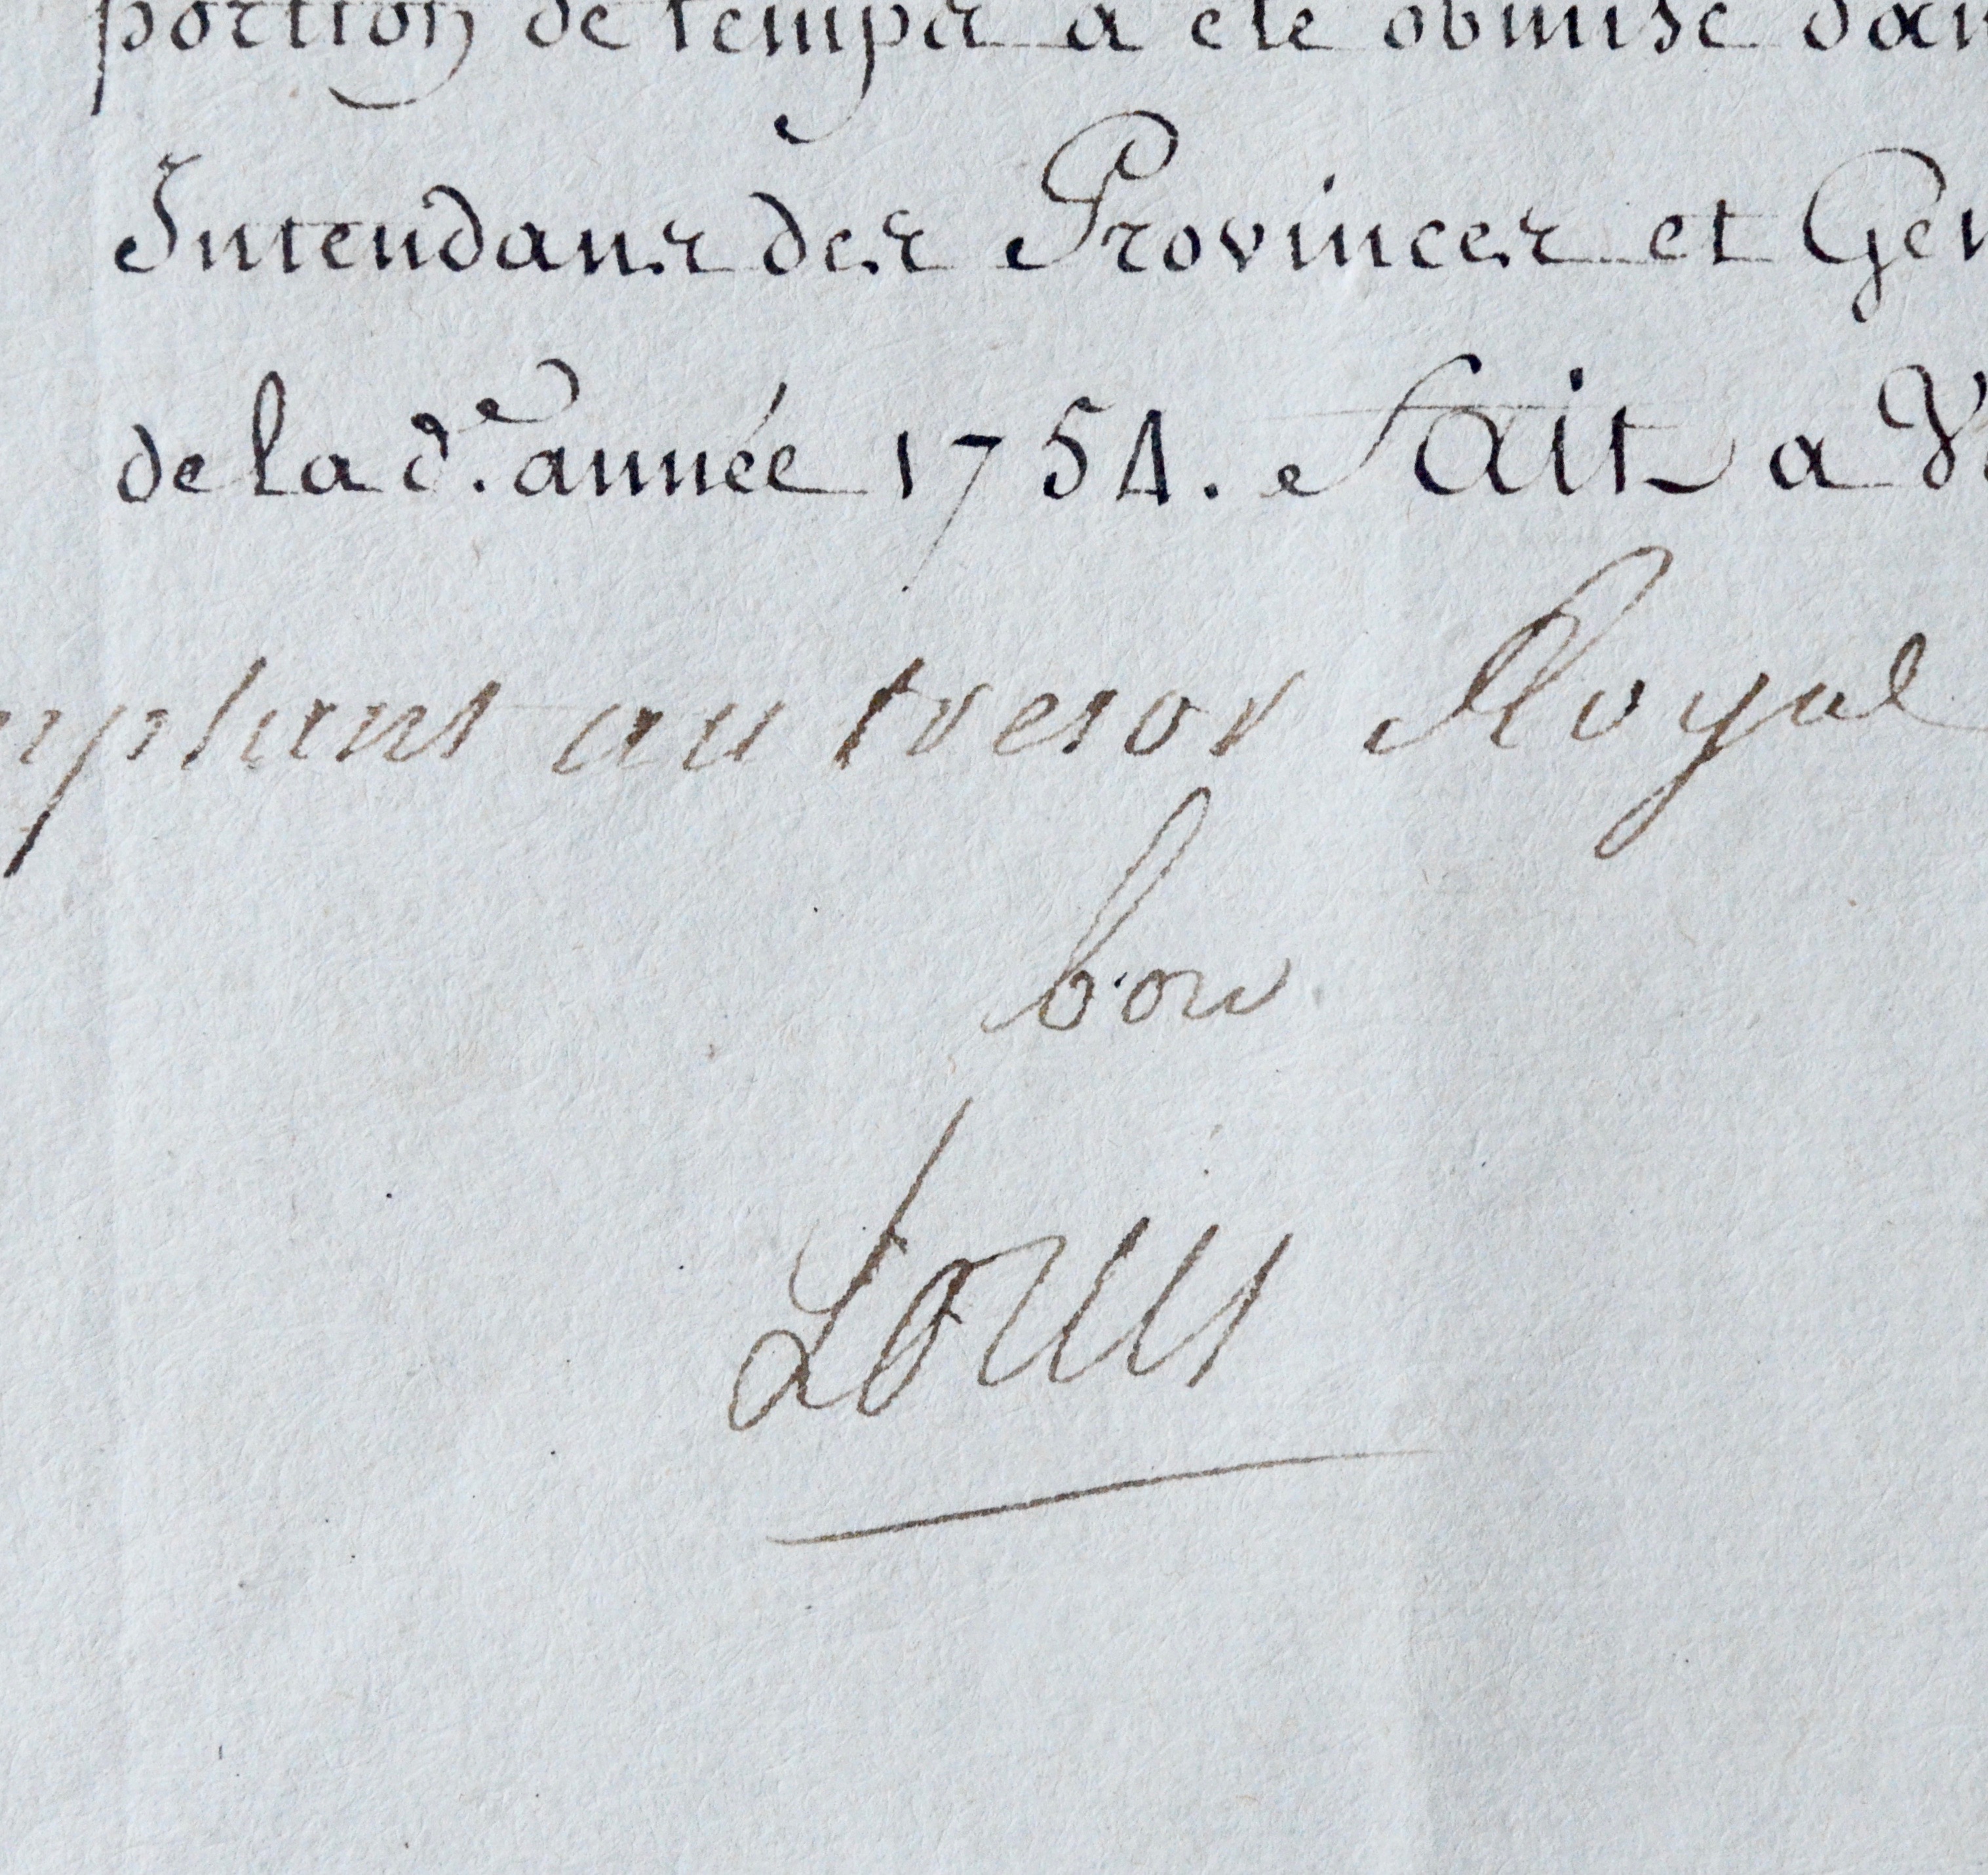 portion de temps a eté obmise dan
Intendans des Provinces et Gen
de la de. année 1754. Fait a V
mptant au tresor Royal
bon
Louis